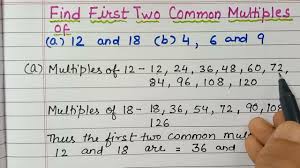 Find First Two Common Multiples
of
(a) 12 and 18 (b) 4, 6 and 9
(a) Multiples of 12 - 12, 24, 36, 48, 60, 72,
84, 96, 108, 120
Multiples of 18 - 18, 36, 54, 72, 90, 108
126
Thus the first two common mul
12 and 18 are = 36 and